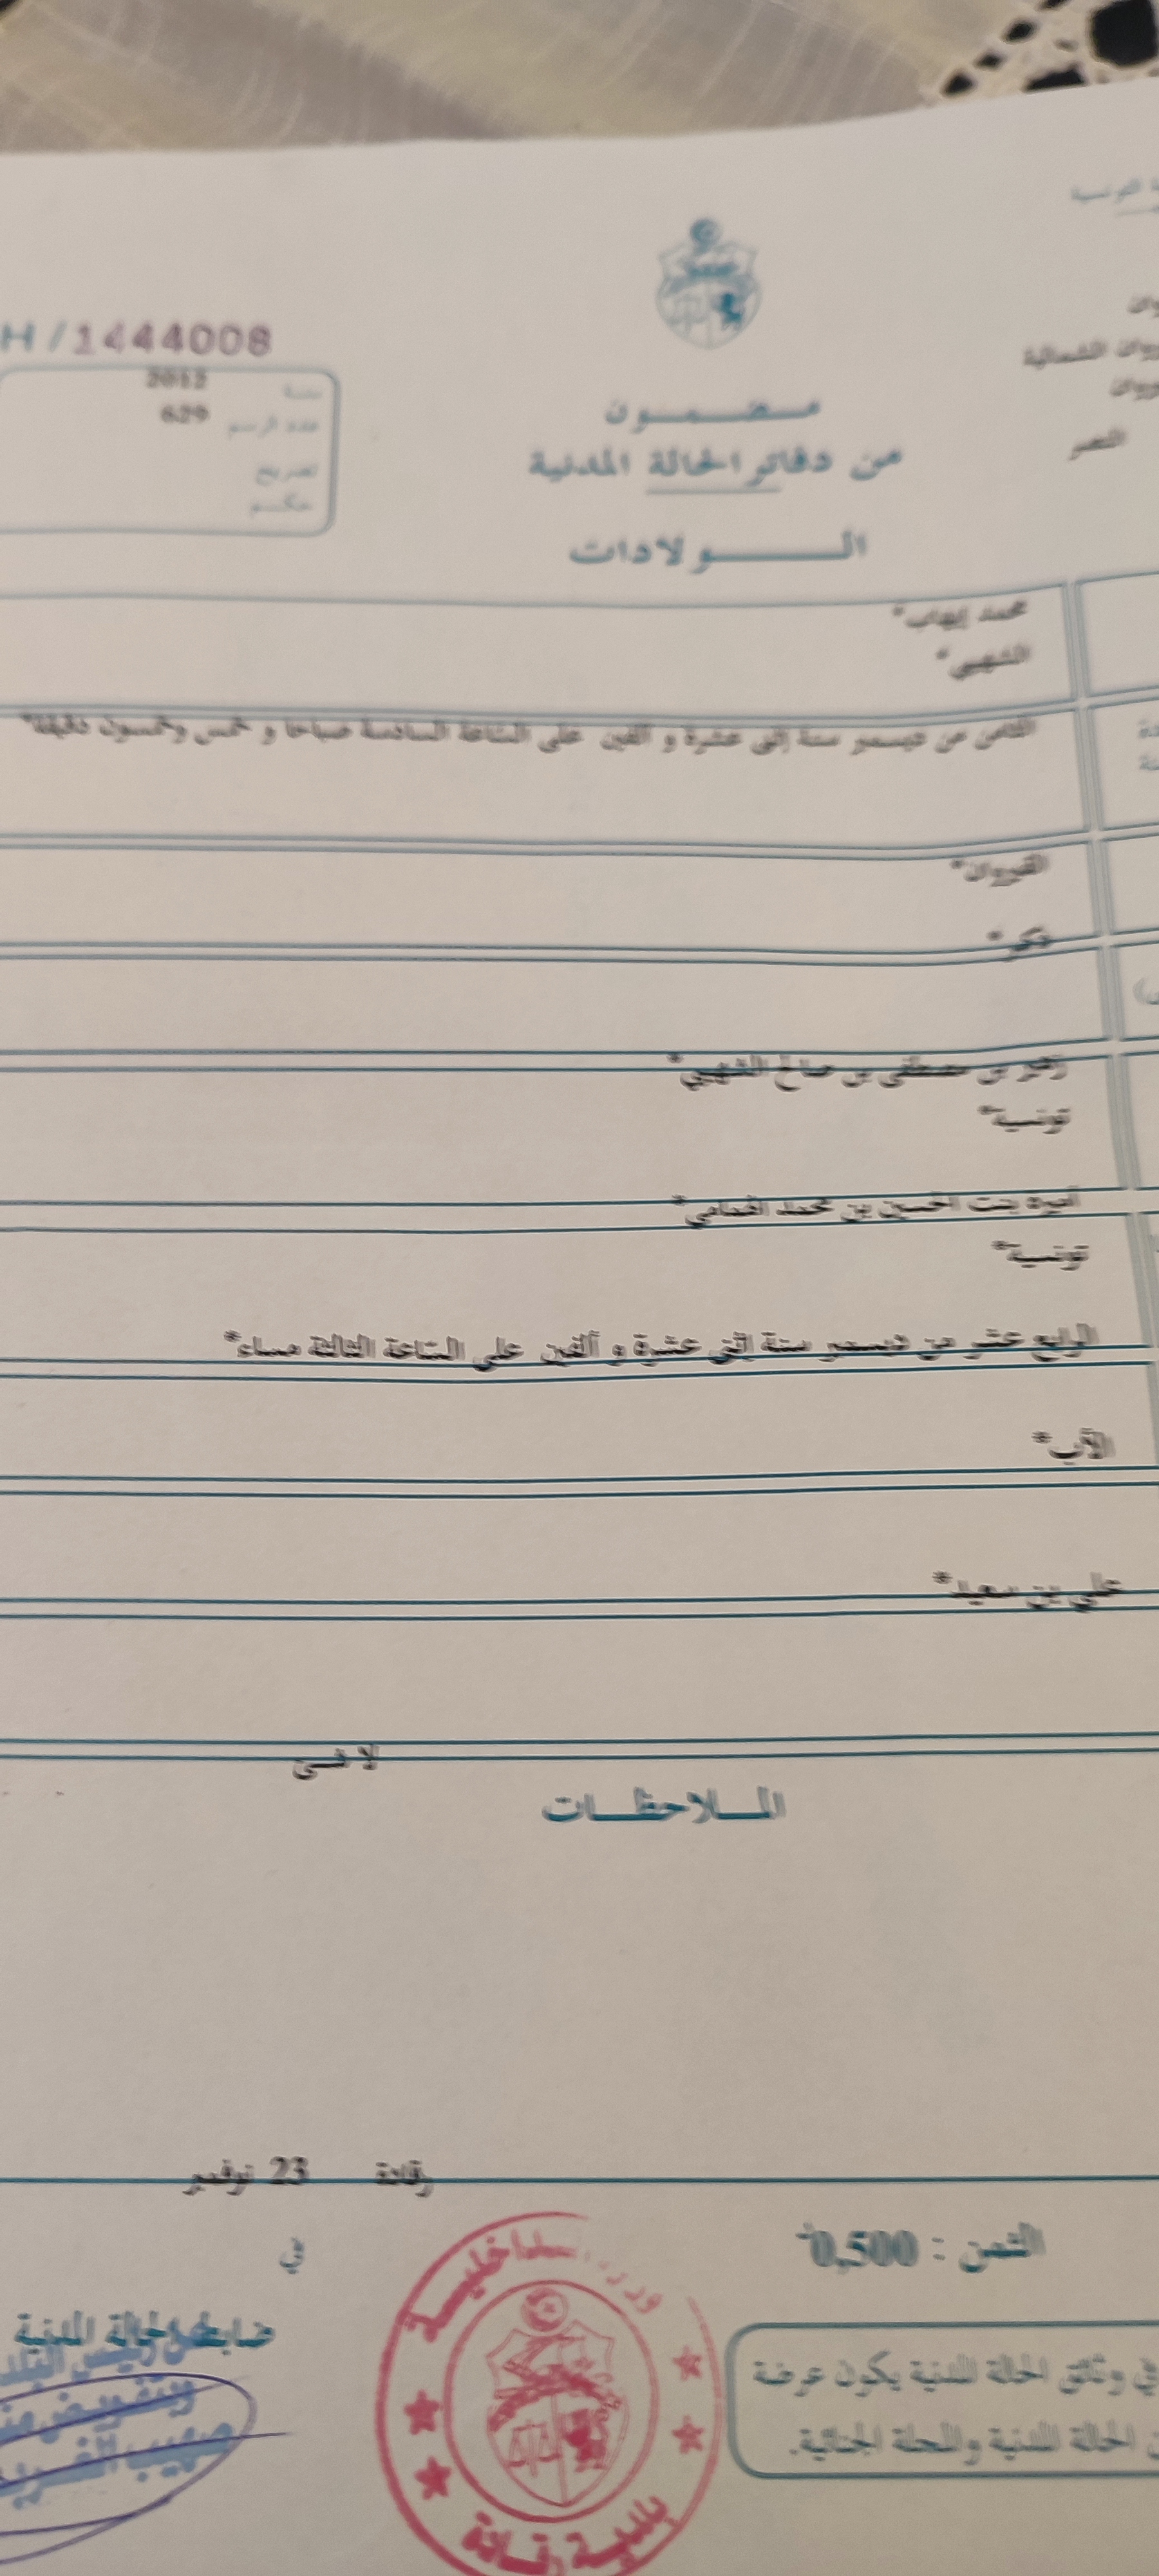 H / 1444008
سنة 2012
عدد الرسم 629
تصريح
حكم
مضمون
من دفاتر الحالة المدنية
الولادات
القيروان الشمالية
القيروان
النصر
محمد إيهاب*
الشهيبي*
الثامن من ديسمبر سنة إثني عشرة و ألفين على الساعة السادسة صباحا و خمس وخمسون دقيقة*
القيروان*
ذكر*
بن مصطفى بن صالح الشهيبي*
تونسية*
أميرة بنت الحسين بن محمد
تونسية*
الرابع عشر من ديسمبر سنة إثني عشرة و ألفين على الساعة الثالثة مساء*
الأب*
علي بن سعيد*
لا شيئ
الملاحظات
رقادة 23 نوفمبر
في
الثمن : 0,500
ضابط الحالة المدنية
في وثائق الحالة المدنية يكون عرضة
الحالة المدنية والمجلة الجنائية.
الداخلية
بلدية رقادة